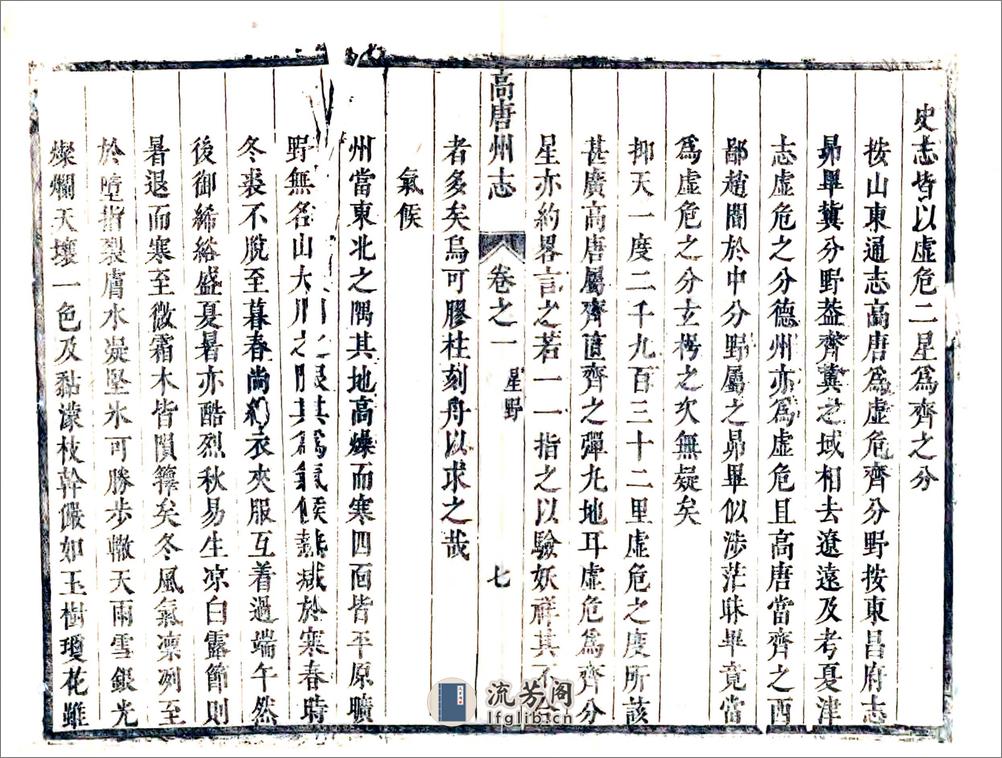 史志皆以虛危二星爲齊之分
按山東通志高唐爲虛危齊分野按東昌府志
昴畢冀分野葢齊冀之域相去遼遠及考夏津
志虛危之分德州亦爲虛危且高唐當齊之西
鄙趙閒於中分野屬之昴畢似涉茫昧畢竟當
爲虛危之分玄枵之次無疑矣
抑天一度二千九百三十二里虛危之度所該
甚廣高唐屬齊直齊之彈丸地耳虛危爲齊分
星亦約畧言之若一一指之以驗妖祥其不
者多矣烏可膠柱刻舟以求之哉
高唐州志
卷之一
星野
七
氣候
州當東北之隅其地高燥而寒四面皆平原曠
野無名山大川之限其爲氣候熱减於寒春時
冬裘不脫至暮春尚衣夾服互着過端午然
後御絺綌盛夏暑亦酷烈秋易生凉白露節則
暑退而寒至微霜木皆隕籜矣冬風氣凛冽至
於墮指裂膚水凝堅氷可勝步轍天雨雪銀光
燦爛天壤一色及黏濛枝幹儼如玉樹瓊花雖
流芳阁
lfglib.cn